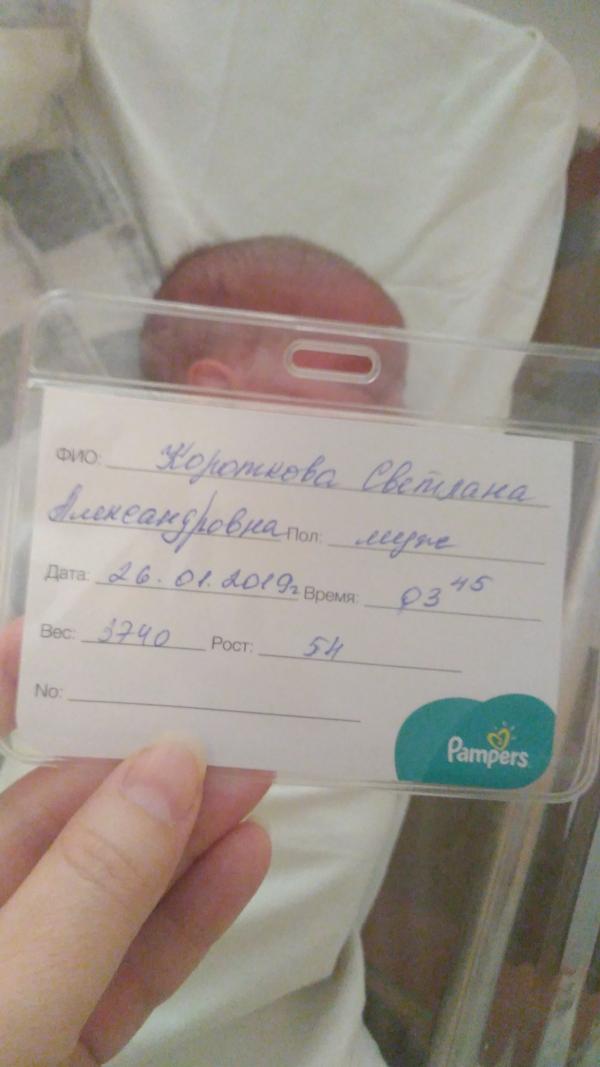 ФИО: Короткова Светлана
Александровна Пол: муж
Дата: 26.01.2019г Время: 03 45
Вес: 3740 Рост: 54
No:
Pampers